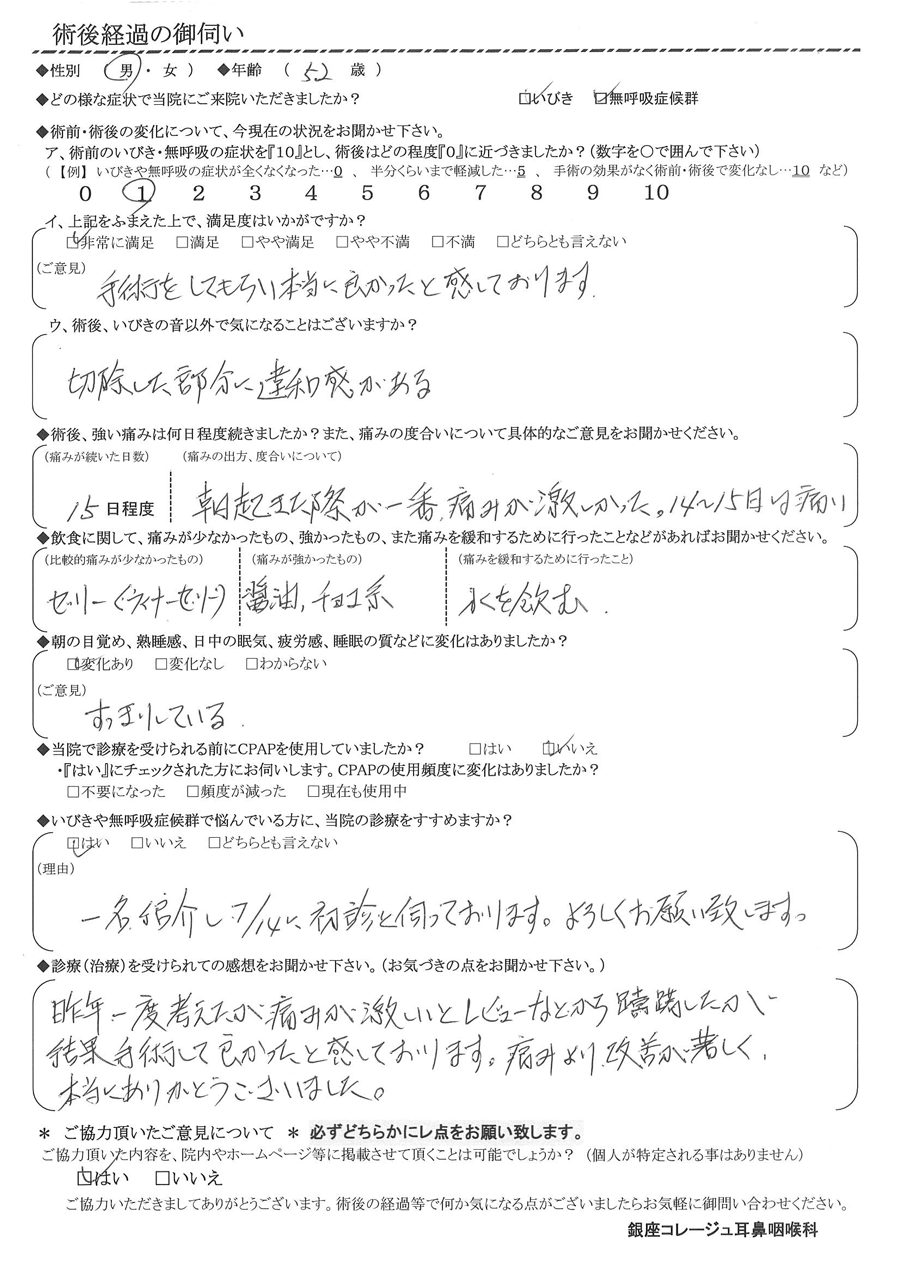 術後経過の御伺い
◆性別 （ 男 ・ 女 ） ◆年齢 （ 52 歳 ）
◆どの様な症状で当院にご来院いただきましたか？ ☑いびき ☑無呼吸症候群
◆術前・術後の変化について、今現在の状況をお聞かせ下さい。
ア、術前のいびき・無呼吸の症状を『10』とし、術後はどの程度『0』に近づきましたか？（数字を○で囲んで下さい）
（【例】 いびきや無呼吸の症状が全くなくなった…0 、 半分くらいまで軽減した…5 、 手術の効果がなく術前・術後で変化なし…10 など）
0 1 2 3 4 5 6 7 8 9 10
イ、上記をふまえた上で、満足度はいかがですか？
☑非常に満足 □満足 □やや満足 □やや不満 □不満 □どちらとも言えない
（ご意見）
手術をしてもらい本当に良かったと感じております.
ウ、術後、いびきの音以外で気になることはございますか？
切除した部分に違和感がある
◆術後、強い痛みは何日程度続きましたか？また、痛みの度合いについて具体的なご意見をお聞かせください。
（痛みが続いた日数） （痛みの出方、度合いについて）
15 日程度 朝起きた際が一番、痛みが激しかった。14～15日は痛い
◆飲食に関して、痛みが少なかったもの、強かったもの、また痛みを緩和するために行ったことなどがあればお聞かせください。
（比較的痛みが少なかったもの） （痛みが強かったもの） （痛みを緩和するために行ったこと）
ゼリー（ウィナーゼリー） 醤油，チョコ系 水を飲む.
◆朝の目覚め、熟睡感、日中の眠気、疲労感、睡眠の質などに変化はありましたか？
☑変化あり □変化なし □わからない
（ご意見）
すっきりしている.
◆当院で診療を受けられる前にCPAPを使用していましたか？ □はい ☑いいえ
・『はい』にチェックされた方にお伺いします。CPAPの使用頻度に変化はありましたか？
□不要になった □頻度が減った □現在も使用中
◆いびきや無呼吸症候群で悩んでいる方に、当院の診療をすすめますか？
☑はい □いいえ □どちらとも言えない
（理由）
一名、紹介し7/14に初診と伺っております。よろしくお願い致します。
◆診療（治療）を受けられての感想をお聞かせ下さい。（お気づきの点をお聞かせ下さい。）
昨年、一度考えたが痛みが激しいとレビューなどから躊躇したが、
結果手術して良かったと感じております。痛みより、改善が著しく、
本当にありがとうございました。
＊ ご協力頂いたご意見について ＊ 必ずどちらかにレ点をお願い致します。
ご協力頂いた内容を、院内やホームページ等に掲載させて頂くことは可能でしょうか？ （個人が特定される事はありません）
☑はい □いいえ
ご協力いただきましてありがとうございます。術後の経過等で何か気になる点がございましたらお気軽に御問い合わせください。
銀座コレージュ耳鼻咽喉科